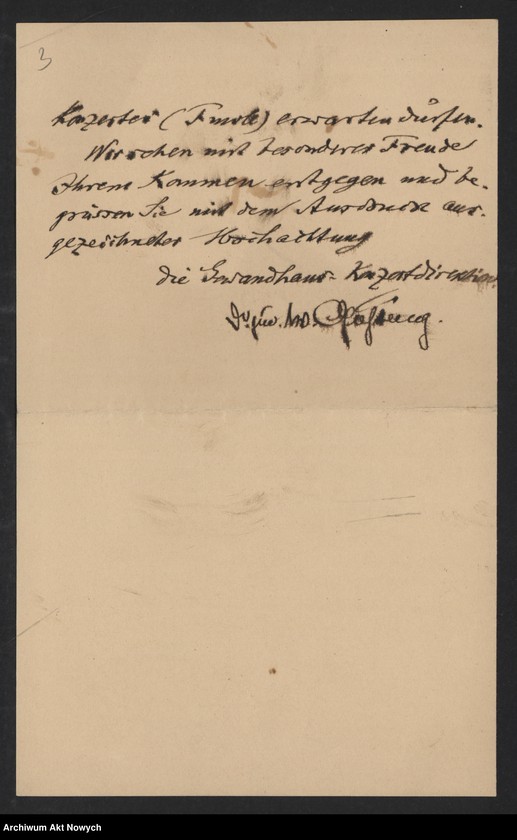 3
Konzertes (F moll) erwarten dürfen.
Wir sehen mit besonderer Freude
Ihrem Kommen entgegen und be-
grüssen Sie mit dem Ausdruck aus-
gezeichneter Hochachtung
die Gewandhaus-Konzertdirektion.
Dr. jur.
Archiwum Akt Nowych